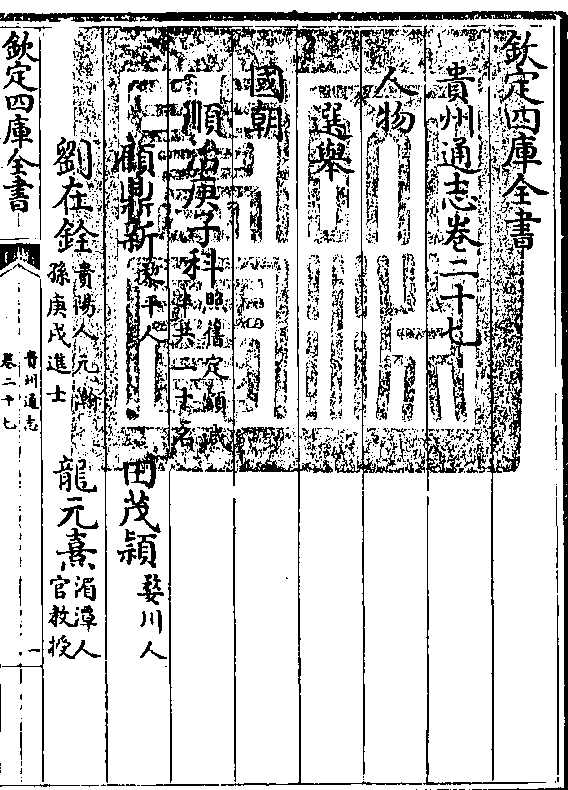 欽定四庫全書
貴州通志卷二十七
人物
選舉
國朝
順治庚子科照舊定額減半共二十名
顧鼎新黎平人 田茂穎婺川人
劉在銓貴陽人元瀚孫庚戌進士 龍元熹湄潭人官教授
欽定四庫全書 貴州通志 卷二十七 一